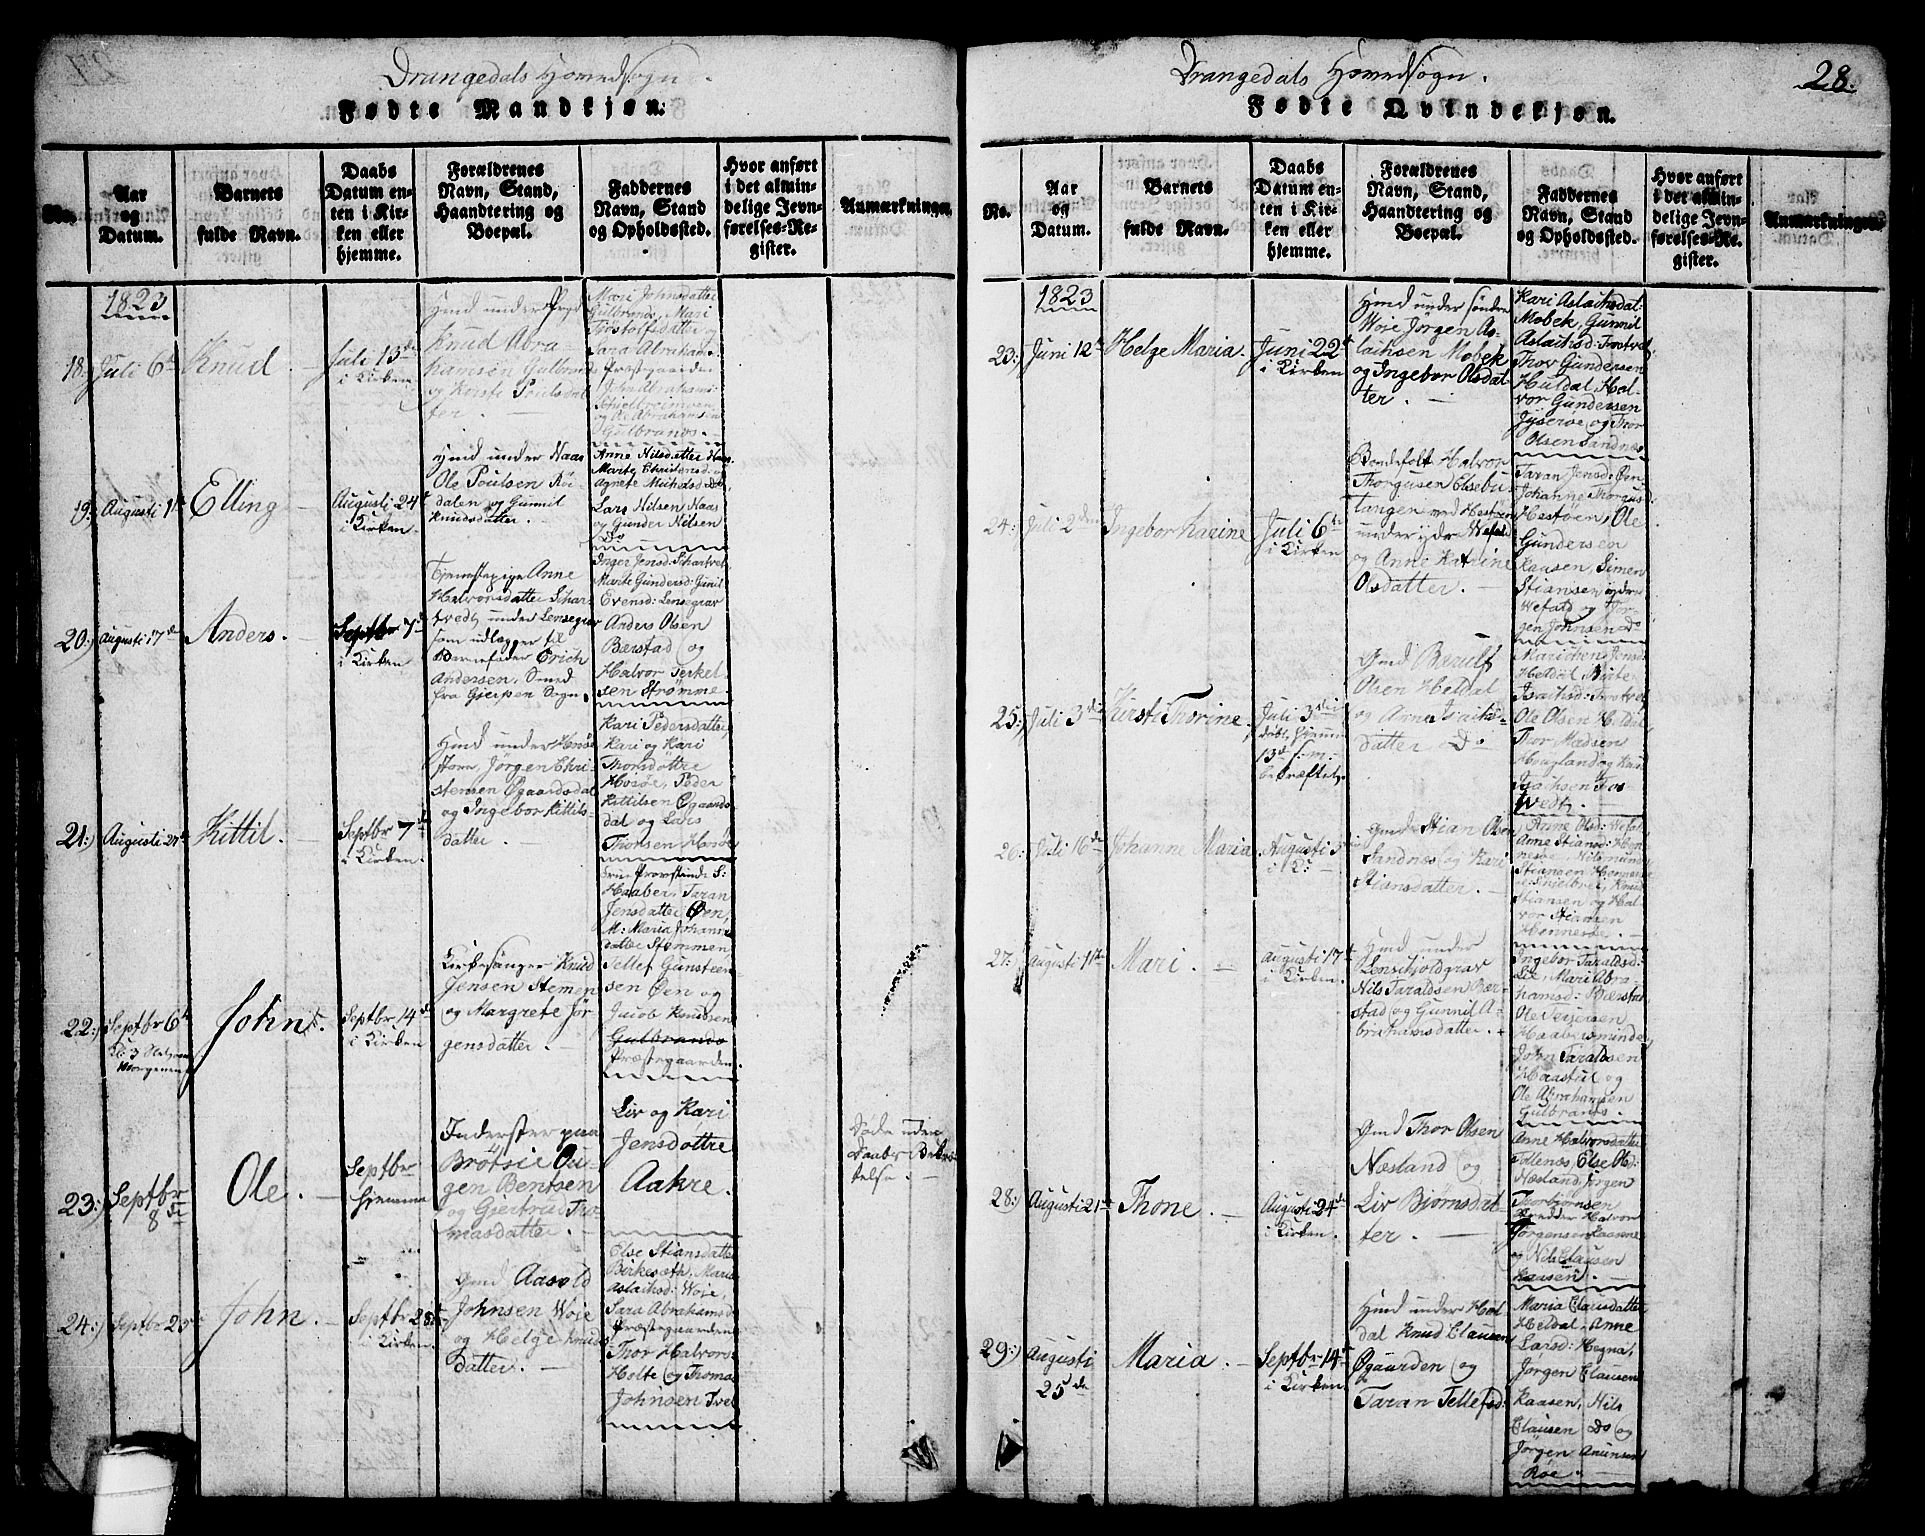 Drangedals Hovedsogn.
Fødte Mandkjøn.
No.
Aar og Datum.
Barnets fulde Navn.
Daabs Datum enten i Kirken eller hjemme.
Forældrenes Navn, Stand, Haandtering og Boepæl.
Faddernes Navn, Stand og Opholdssted.
Hvor anført i det almindelige Jevnførelses-Register.
Anmærkninger.
1823
18.
Juli 6te
Knud
Juli 13de
i Kirken
Knud Abra-
hamsen Gulbrands
og Kirsti Poulsdat
ter.
Mari Johnsdatter
Gulbrands, Mari
Sara Abrahams
Præstegaarden
og Ole Abrahamsen
Gulbrands.
19.
Augusti 1te
Elling
Augusti 24de
i Kirken.
Hmd under Naas
Ole Poulsen Rø-
dalen og Gunnil
Knudsdatter.
Anne Nilsdatter Naas
Marte Christensd: og
Agnete Michelsd: Do,
Lars Nilsen Naas
og Gunder Nilsen
Do
20:)
Augusti 17de
Anders.
Septbr 7de
i Kirken
Tjenestepige Anne
Halvorsdatter Skar-
tvedt under Lensegrav
som udlægger til
Barnefader Erich
Andersen, Smed
fra Gjerpen Sogn.
Inger Jensd: Schartvet
Marte Gundersd: Gunil
Evensd: Lensegrav
Anders Olsen
Bærstad og
Halvor Terkel-
sen Strømme.
21:)
Augusti 27de
Kittil.
Septbr 7de
i Kirken.
Hmd under Hosøe
Jørgen Chri-
stensen Øgaardsdal
og Ingebor Kittils-
datter.
Kari Pedersdatter,
Kari og Kari
Thorsdøttre
Hosøe, Peder
Kittilsen Øgaards
dal og Lars
Thorsen Hosøe
22:)
Septbr 6te
Kl: 3
Morgenen
John.
Septbr 14de
i Kirken
Kirkesanger Knud
Jensen Stemmen
og Margrete Jør
gensdatter.
Haaber, Taran
Jensdatter Øen,
M: Maria Johanne
datter Stemmen
Tellef Gunsteen-
sen Øen og
Jacob Knudsen
Gulbrands
Præstegaarden.
23:)
Septbr
8de
Ole.
Septbr
hjemme
Inderster paa
Brøtsie Ou-
gen Bentsen
og Gjertrud Tho-
masdatter.
Liv og Kari
Jensdøttre
Aakre.
Døde uden
Daabs Bekræf-
telse.
24:)
Septbr 25de
John.
Septbr 28de
i Kirken.
Gmd Aasold
Johnsen Woje
og Helge Knuds-
datter.
Else Stiansdatter
Birkesæth, Mari
Aslachsd: Woje,
Sara Abrahamsd
Præstegaarden
Thor Halvors.
Holte og Thomas
Johnsen Tvet
Drangedals Hovedsogn.
28.
Fødte Qvindekjøn.
No.
Aar og Datum.
Barnets fulde Navn.
Daabs Datum enten i Kirken eller hjemme.
Forældrenes Navn, Stand, Haandtering og Boepæl.
Faddernes Navn, Stand og Opholdssted.
Hvor anført i det almindelige Jevnførelses-Register.
Anmærkninger.
1823
23:)
Juni 12te
Helge Maria.
Juni 22de
i Kirken
Hmd under søndre
Woje Jørgen As-
lachsen Mobek
og Ingebor Olsdat
ter.
Kari Aslachsdat:
Mobek, Gunnil
Aslachsd: Tvetvet
Thor Gundersen
Huldal, Hal-
vor Gundersen
og Thor
Olsen Sandnæs
24:
Juli 2den
Ingebor Karine
Juli 6te
i Kirken
Bondefolk Halvor
Thorgusen Elsebu-
tangen ved Hestøen
under ydre Wefald
og Anne Katrine
Olsdatter.
Taran Jensd: Øen
Johanne Thorgus:
Hestøen, Ole
Gundersen
Kaasen, Simen
Stiansen ydre
Wefald og Jør-
gen Johnsen Do
25:)
Juli 3die
Kirsti Thorine
Juli 3die
døbt hjemme
13de
bekræftet.
Gmd Bærulf
Olsen Heldal
og Anne Isachs-
datter Do
Marichen Jensd:
Heldal, Birte
Isachsd: Tvetvet
Ole Olsen Heldal,
Thor Madsen
Hougland og Knud
Isachsen Tos
vedt.
26:
Juli 16de
Johanne Maria
Augusti 3
i K:
Gmd Stian Olsen
Sandnæs og Kari
Stiansdatter.
Anne Olsd: Wefal
Anne Stiansd: Hen-
nesøe, Nilsmunds
Stiansen Hennesøe
Knud
Stiansen og Hal-
vor Stiansen
Hennesøe.
27:
Augusti 11te
Mari
Augusti 17de
i Kirken
Hmd under
Lenschjoldgrav
Nils Taraldsen Bær-
stad og Gunnil A-
brahamsdatter.
Ingebor Taraldsd:
Lie, Mari Abra
hamsd: Bærstad
Ole Terjersen
Haabersminde,
John Taraldsen
Haastul og
Ole Abrahamsen
Gulbrands.
28:)
Augusti 21de
Thone.
Augusti 24de
i Kirken.
Gmd Thor Olsen
Næsland og
Liv Bjørnsdat-
ter.
Anne Halvorsdatter
Tollenæs, Else Ol:
Næsland, Jørgen
Thorbjørnsen
Halvor
Jørgensen Kaasene
og Nils Clausen
Kaasen.
29:)
Augusti
25de
Maria.
Septbr 14de
i Kirken.
Hmd under Hel
dal Knud Clausen
Øgaarden og
Taran Tellefsd:
Maria Clausdatter
Heldal, Anne
Larsd: Hegna,
Jørgen Clausen
Kaasen, Nils
Clausen Do og
Jørgen Anunsen
Røe.